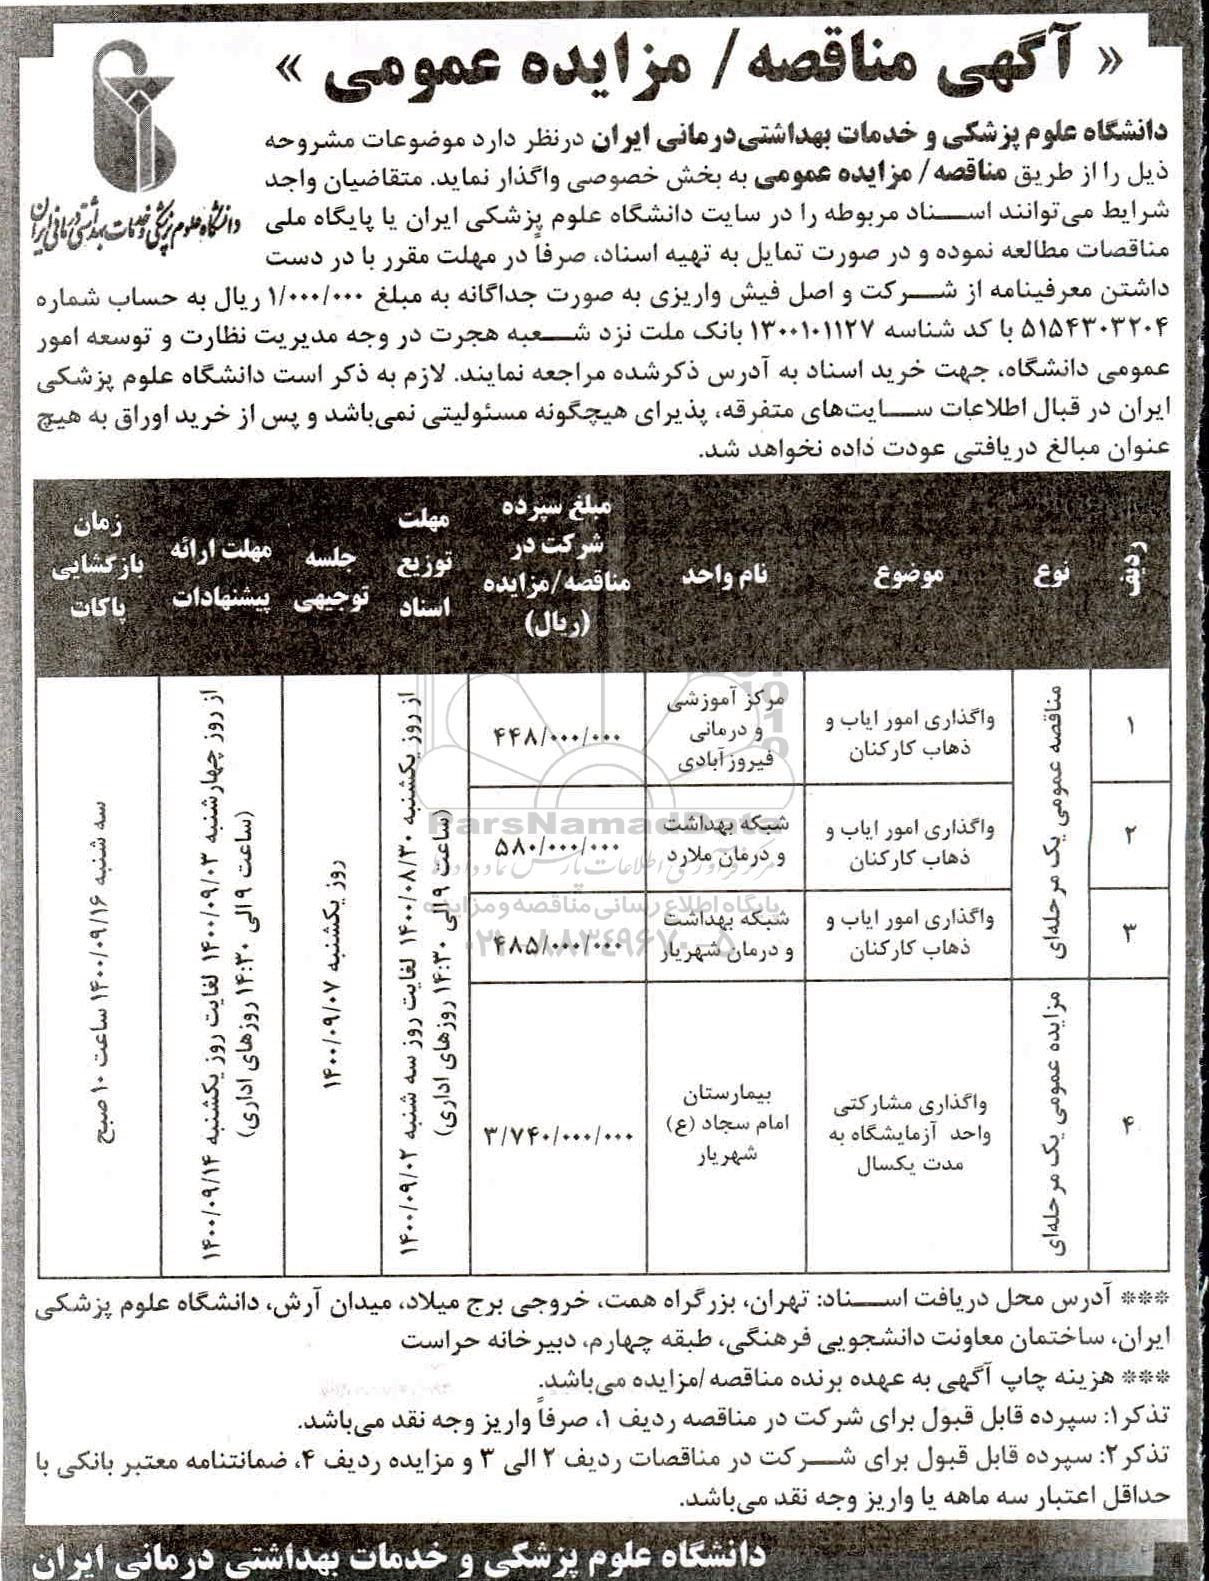 « آگهی مناقصه / مزایده عمومی »
دانشگاه علوم پزشکی و خدمات بهداشتی درمانی ایران
دانشگاه علوم پزشکی و خدمات بهداشتی‌درمانی ایران درنظر دارد موضوعات مشروحه
ذیل را از طریق مناقصه / مزایده عمومی به بخش خصوصی واگذار نماید. متقاضیان واجد
شرایط می‌توانند اسناد مربوطه را در سایت دانشگاه علوم پزشکی ایران یا پایگاه ملی
مناقصات مطالعه نموده و در صورت تمایل به تهیه اسناد، صرفاً در مهلت مقرر با در دست
داشتن معرفینامه از شرکت و اصل فیش واریزی به صورت جداگانه به مبلغ ۱/۰۰۰/۰۰۰ ریال به حساب شماره
۵۱۵۴۳۰۳۲۰۴ با کد شناسه ۱۳۰۰۱۰۱۱۲۷ بانک ملت نزد شعبه هجرت در وجه مدیریت نظارت و توسعه امور
عمومی دانشگاه، جهت خرید اسناد به آدرس ذکرشده مراجعه نمایند. لازم به ذکر است دانشگاه علوم پزشکی
ایران در قبال اطلاعات سایت‌های متفرقه، پذیرای هیچگونه مسئولیتی نمی‌باشد و پس از خرید اوراق به هیچ
عنوان مبالغ دریافتی عودت داده نخواهد شد.
ردیف
نوع
موضوع
نام واحد
مبلغ سپرده
شرکت در
مناقصه/مزایده
(ریال)
مهلت
توزیع
اسناد
جلسه
توجیهی
مهلت ارائه
پیشنهادات
زمان
بازگشایی
پاکات
۱
مناقصه عمومی یک مرحله‌ای
واگذاری امور ایاب و
ذهاب کارکنان
مرکز آموزشی
و درمانی
فیروزآبادی
۴۴۸/۰۰۰/۰۰۰
از روز یکشنبه ۱۴۰۰/۰۸/۳۰ لغایت روز سه شنبه ۱۴۰۰/۰۹/۰۲
(ساعت ۹ الی ۱۴:۳۰ روزهای اداری)
روز یکشنبه ۱۴۰۰/۰۹/۰۷
از روز چهارشنبه ۱۴۰۰/۰۹/۰۳ لغایت روز یکشنبه ۱۴۰۰/۰۹/۱۴
(ساعت ۹ الی ۱۴:۳۰ روزهای اداری)
سه شنبه ۱۴۰۰/۰۹/۱۶ ساعت ۱۰ صبح
۲
واگذاری امور ایاب و
ذهاب کارکنان
شبکه بهداشت
و درمان ملارد
۵۸۰/۰۰۰/۰۰۰
۳
واگذاری امور ایاب و
ذهاب کارکنان
شبکه بهداشت
و درمان شهریار
۴۸۵/۰۰۰/۰۰۰
۴
مزایده عمومی یک مرحله‌ای
واگذاری مشارکتی
واحد آزمایشگاه به
مدت یکسال
بیمارستان
امام سجاد (ع)
شهریار
۳/۷۴۰/۰۰۰/۰۰۰
ParsNamadData
مرکز فرآوری اطلاعات پارس نماد داده‌ها
پایگاه اطلاع رسانی مناقصه و مزایده
۰۲۱-۸۸۳۴۹۶۷۰-۵
*** آدرس محل دریافت اسناد: تهران، بزرگراه همت، خروجی برج میلاد، میدان آرش، دانشگاه علوم پزشکی
ایران، ساختمان معاونت دانشجویی فرهنگی، طبقه چهارم، دبیرخانه حراست
*** هزینه چاپ آگهی به عهده برنده مناقصه /مزایده می‌باشد.
تذکر۱: سپرده قابل قبول برای شرکت در مناقصه ردیف ۱، صرفاً واریز وجه نقد می‌باشد.
تذکر۲: سپرده قابل قبول برای شرکت در مناقصات ردیف ۲ الی ۳ و مزایده ردیف ۴، ضمانتنامه معتبر بانکی با
حداقل اعتبار سه ماهه یا واریز وجه نقد می‌باشد.
دانشگاه علوم پزشکی و خدمات بهداشتی درمانی ایران